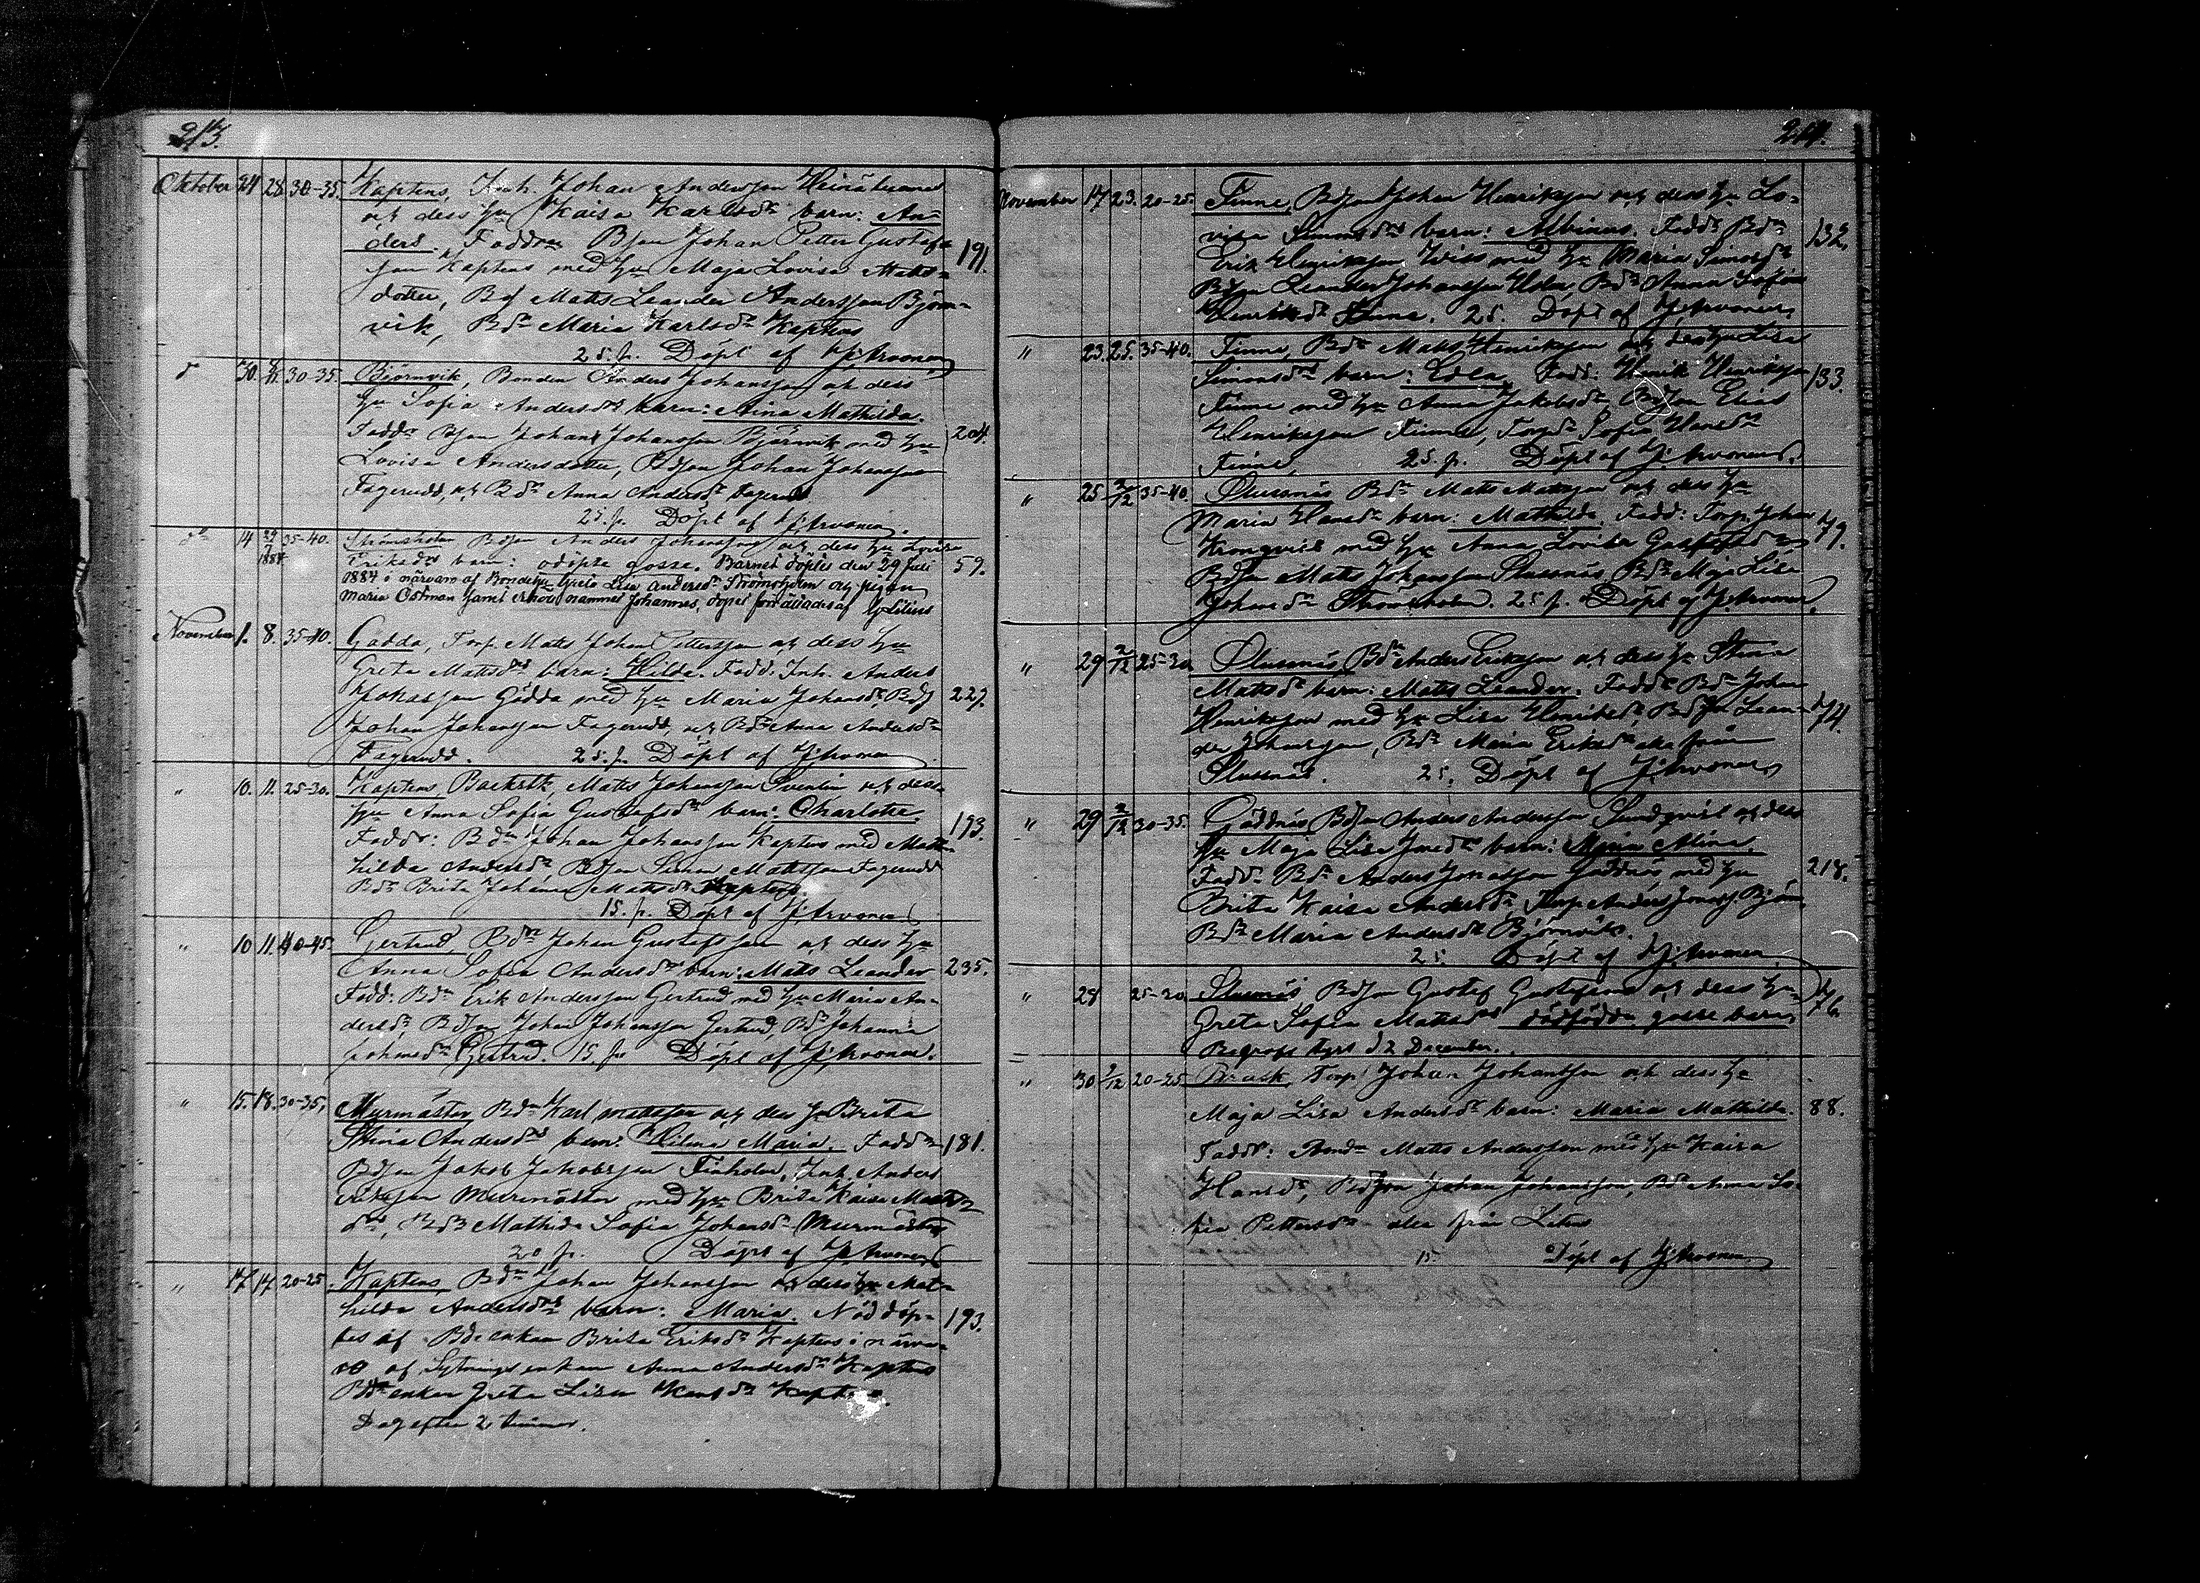 213.
Oktober 24 28 30-35. Kaptens, Inh. Johan Andersson
och dess hu Kaisa Karlsdr barn: An-
ders. Faddrar Bson Johan Petter Gustafs-
son Kaptens med hu Maja Lovisa Matts- 191.
dotter, Bds Matts Leander Andersson Björn-
vik, Bdr Maria Karlsdr Kaptens
25. p. Döpt af
30. 30-35 Björnvik, Bonden Anders Johansson och dess
hu Sofia Andersdr barn: Aina Mathilda.
Faddr Bson Johan Johansson Björnvik med hu 204.
Lovisa Andersdotter, Bdson Johan Johansson
Fagerudd, och Bdr Anna Andersdr Fagerudd
25. p. Döpt af
14 29/7 1884 35-40. Strömsholm Bdson Anders Johansson och dess hu Lovisa
Eriksdr barn: odöpte gosse. Barnet döptes den 29 Juli 59.
1884 i närvaro af Bondehu Greta Lisa Andersdr Strömsholm och pigan
Maria Östman samt namnet Johannes, döpet förrättades af
November 1. 8. 35-40. Gädda, Torp. Matts Johan Pettersson och dess hu
Greta Mattsdr barn: Hilda. Fadd. Inh. Anders
Johansson Gädda med hu Maria Johansdr, Bds 227.
Johan Johansson Fagerudd, och Bdr Anna Andersdr
Fagerudd. 25. p. Döpt af
" 10. 11. 25-30. Kaptens Matts Johansson Sventin och dess
hu Anna Sofia Gustafsdr barn: Charlotte.
Faddr: Bdn Johan Johansson Kaptens med Mat- 193.
hilda Andersdr, Bdson Simon Mattsson Fagerudd
Bdr Brita Johanna Mattsdr Kaptens.
15. p. Döpt af
" 10 11. 40-45. Gertrud Bdn Johan Gustafsson och dess hu
Anna Sofia Andersdr barn: Matts Leander 235.
Fadd: Bdn Erik Andersson Gertrud med hu Maria An-
dersdr, Bdson Johan Johansson Gertrud, Bdr Johanna
Johansdr Gertrud. 15. p. Döpt af
" 15. 18. 30-35. Murmäster Bdn Karl Mattsson och dess hu Brita
Stina Andersdr barn: Vilma Maria. Faddr 181.
Bdson Jakob Jakobsson Finholm, Inh. Anders
Eriksson Murmäster med hu Brita Kaisa Matts-
dr, Bdr Mathilda Sofia Johansdr Murmäster
20 p. Döpt af
" 17. 17. 20-25. Kaptens, Bdn Johan Johansson och dess hu Mat-
hilda Andersdr barn: Maria. Nöddöp- 193.
tes af Bdeenkan Brita Eriksdr Kaptens i närva-
ro af Sytningsenkan Anna Andersdr Kaptens
Bdeenkan Greta Lisa Karlsdr Kaptens.
Dog efter 2 timmar.
214.
November 17 23. 20-25. Finne, Bdson Johan Henriksson och dess hu Lo-
visa Simonsdr barn: Albinus. Faddr Bdn 132.
Erik Henriksson Wiss med hu Maria Simonsdr
Bdson Leander Johansson Bdr Anna Sofia
Henriksdr Finne. 25. Döpt af
" 23. 25. 35-40. Finne, Bdn Matts Henriksson och dess hu Lisa
Simonsdr barn: Edla. Fadd: Henrik Henriksson 133.
Finne med hu Anna Jakobsdr Bdson Elias
Henriksson Finne, Torpdr Sofia Hansdr
Finne. 25. p. Döpt af
" 25. 2/12 35-40. Slussnäs Bdn Matts Mattsson och dess hu
Maria Hansdr barn: Mathilda. Fadd: Torp. Johan
Kronqvist med hu Anna Lovisa Gustafsdr
Bdson Matts Johansson Slussnäs Bdr Maja Lisa
Johansdr Strömsholm. 25 p. Döpt af
" 29 2/12 25-30 Slussnäs Bdn Anders Eriksson och dess hu Stina
Mattsdr barn: Matts Leander. Faddr Bdn Johan
Henriksson med hu Lisa Henriksdr, Bdson Lean- 74.
der Johansson, Bdr Maria Eriksdr alla från
Slussnäs. 25. Döpt af
" 29 2/12 30-35. Gäddnäs Bdson Anders Andersson Sundqvist och dess
hu Maja Lisa barn: Alina.
Faddr. Bdn Anders Jonasson Gäddnäs med hu 218.
Brita Kaisa Andersdr, Torp. Anders
Bdr Maria Andersdr Björnvik.
25. Döpt af
" 28 25-30 Slussnäs Bdson Gustaf Gustafsson och dess hu 76.
Greta Sofia Mattsdr dödfödda gosse barn,
Begrofs tyst d 2 December.
" 30 20-25 Brask, Torp. Johan Johansson och dess hu
Maja Lisa Andersdr barn: Maria Mathilda. 88.
Faddr: Bondn Matts Andersson med hu Kaisa
Hansdr, Bdson Johan Johansson, Bdr Anna So-
fia Pettersdr alla från
15. Döpt af